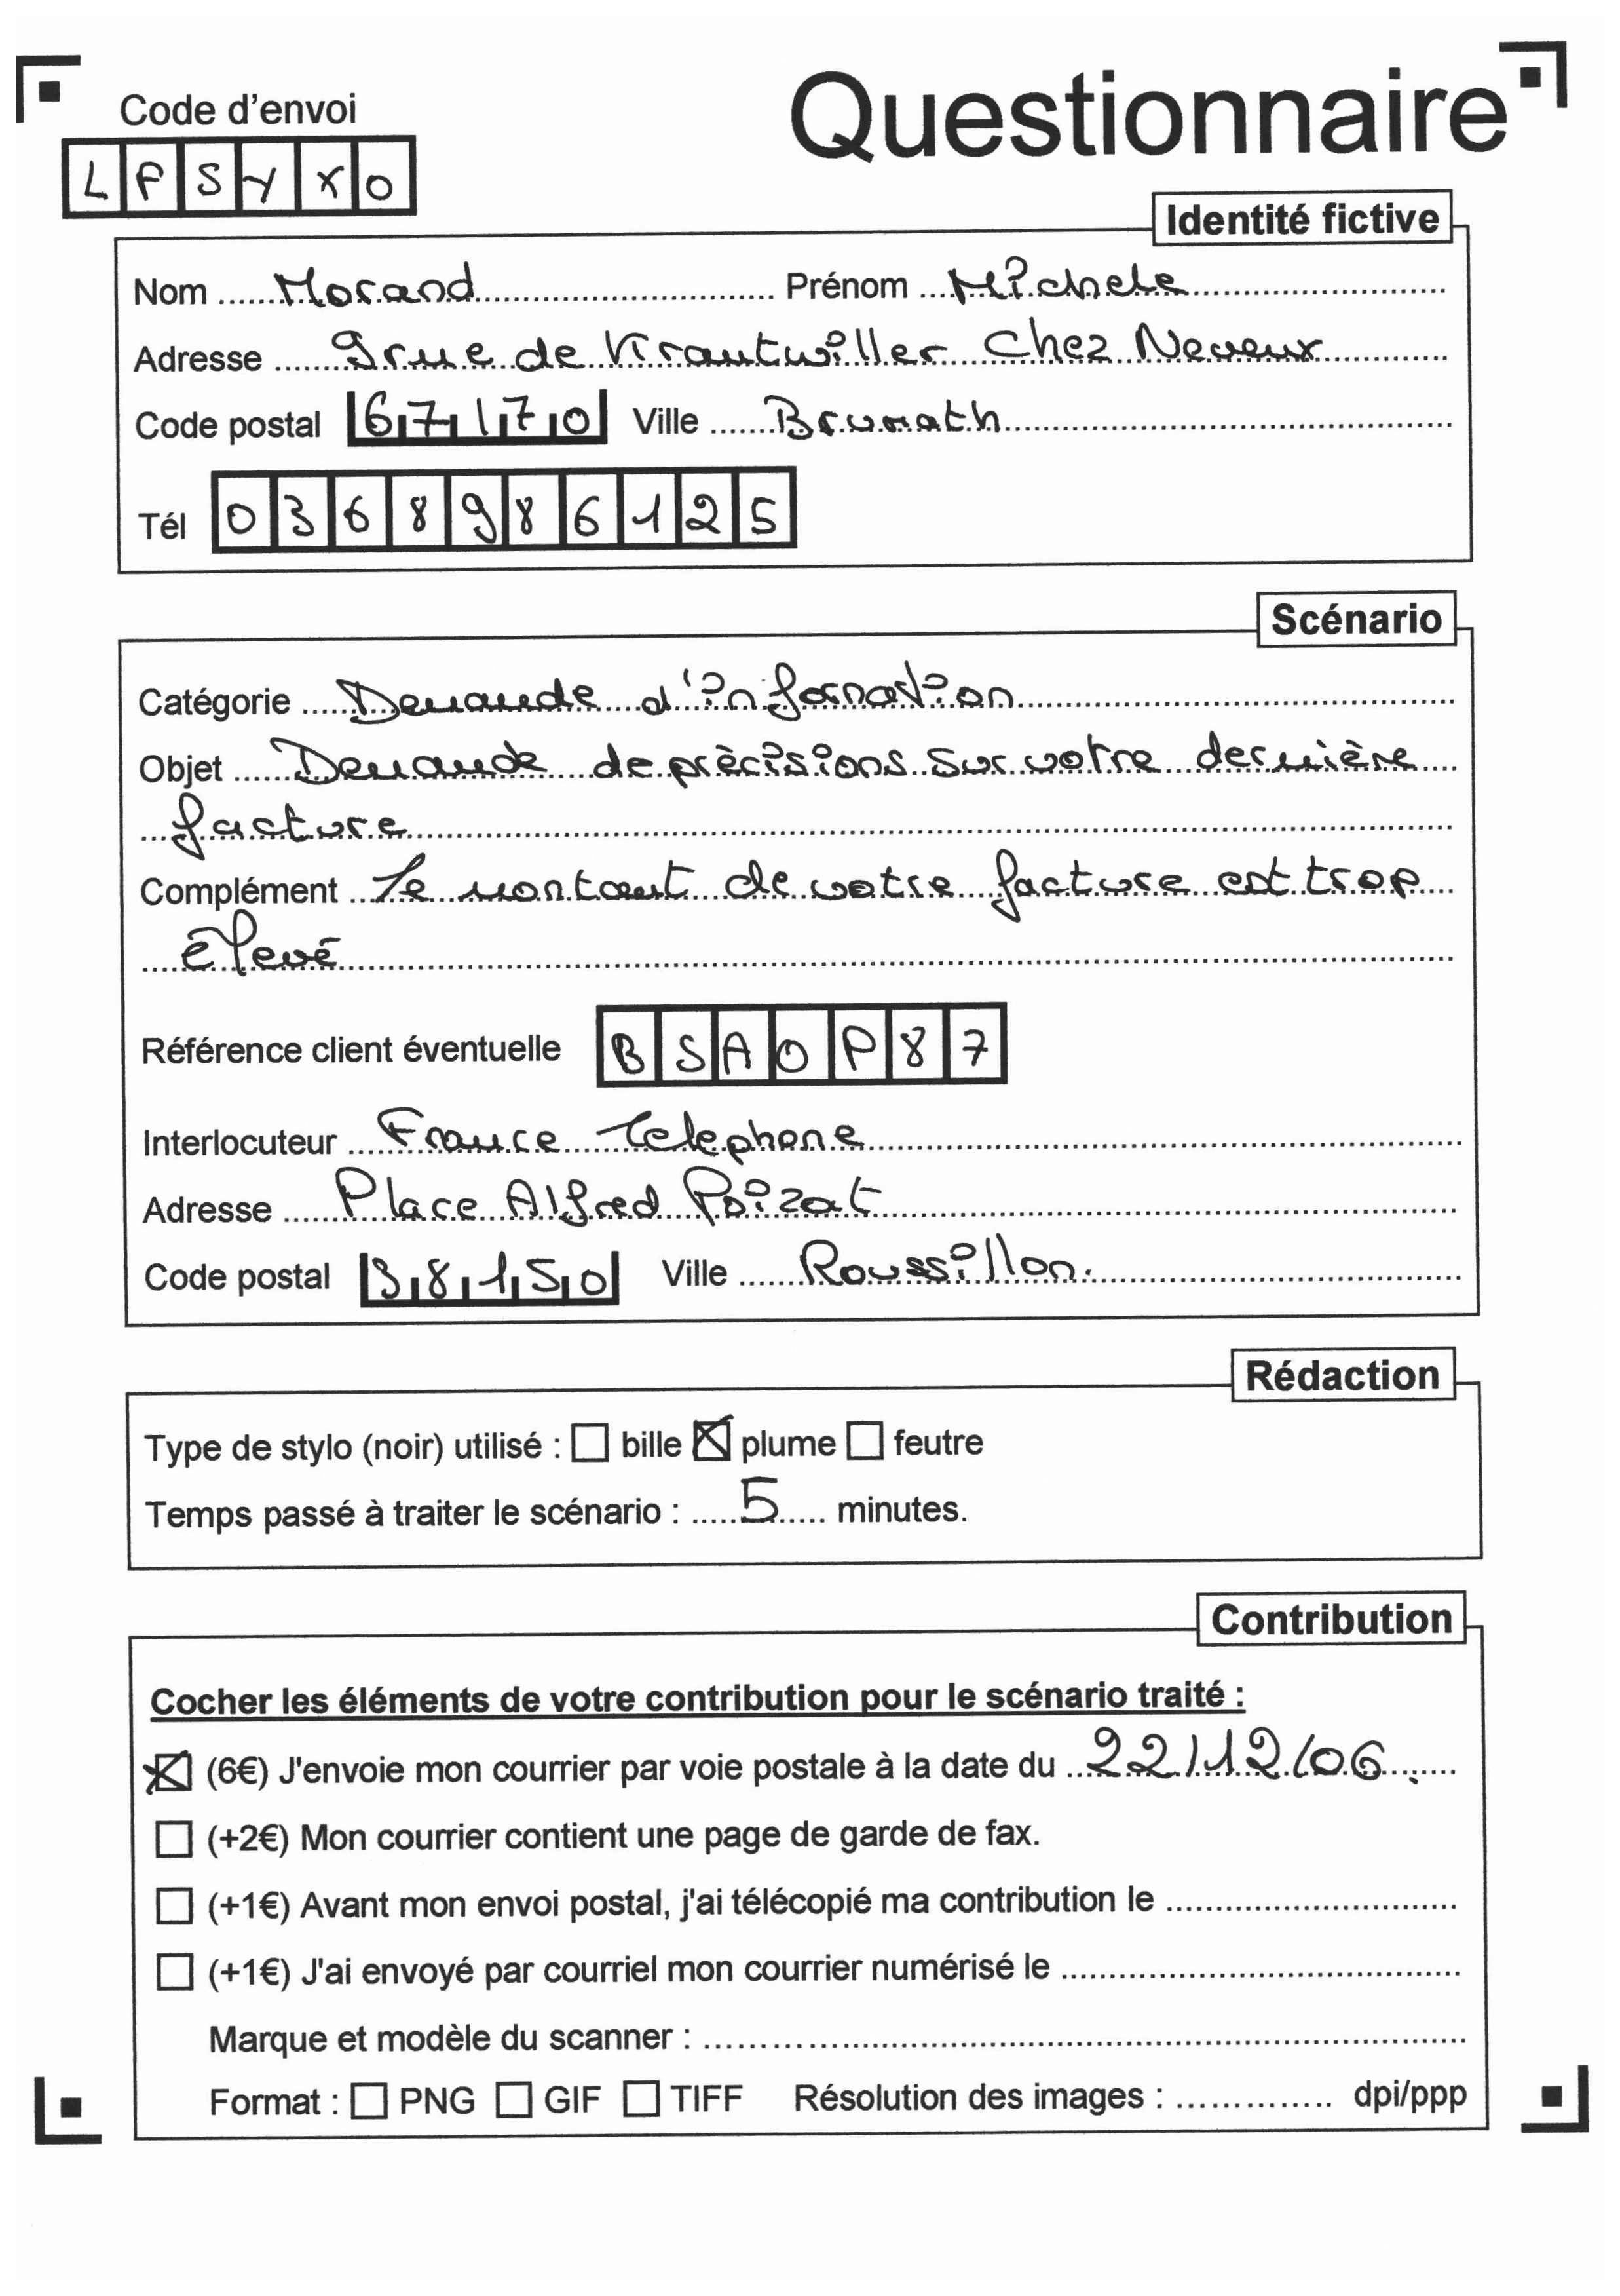 Code d'envoi
Questionnaire
LPSYX0
Identité fictive
Nom Morand Prénom Michele
Adresse 9 rue de Krautwiller Chez Neveux
Code postal 67170 Ville Brumath
Tél 0368986125
Scénario
Catégorie Demande d'information
Objet Demande de précisions sur votre dernière
facture
Complément le montant de votre facture est trop
élevé
Référence client éventuelle BSAOP87
Interlocuteur France Telephone
Adresse Place Alfred Poizat
Code postal 38150 Ville Roussillon.
Rédaction
Type de stylo (noir) utilisé : bille plume feutre
Temps passé à traiter le scénario : 5 minutes.
Contribution
Cocher les éléments de votre contribution pour le scénario traité :
(6€) J'envoie mon courrier par voie postale à la date du 22/12/06.
(+2€) Mon courrier contient une page de garde de fax.
(+1€) Avant mon envoi postal, j'ai télécopié ma contribution le
(+1€) J'ai envoyé par courriel mon courrier numérisé le
Marque et modèle du scanner :
Format : PNG GIF TIFF Résolution des images : dpi/ppp